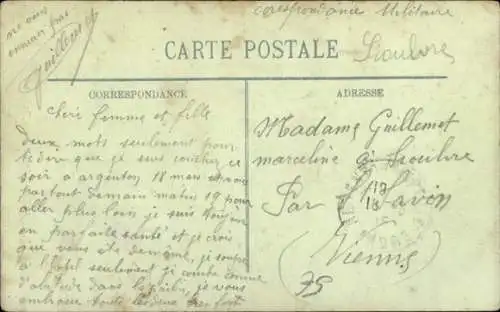 ne vous
ennuier pas
Guillemet
Corespondance Militaire
CARTE POSTALE
CORRESPONDANCE
ADRESSE
chere femme et fille
deux mots seulement pour
te dire que je suis coucher ce
soir a argenton 18 mars et nous
partout demain matin 19 pour
aller plus loin je suis toujour
en parfaite santé et je crois
que vous ete de même, je
à l'hotel seulement je
d'abitude dans la vous
embrasse toute les deux bien fort
Madame Guillemet
marceline a
Par St Savin
(Vienne)
75